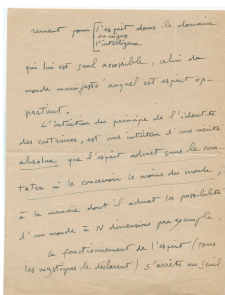 rement pour l'esprit dans le domaine
ou mieux
l'intelligence
qui lui est seul accessible, celui du
monde manifesté auquel cet esprit ap-
partient.
L'intuition du principe de l'identité
des contraires, est une intuition d'une vérité
absolue que l'esprit admet sans la cons-
tater ni le concevoir le moins du monde,
à la manière dont il admet la possibilité
d'un monde à N dimensions par exemple.
Le fonctionnement de l'esprit (tous
les mystiques le déclarent) s'arrête au seuil